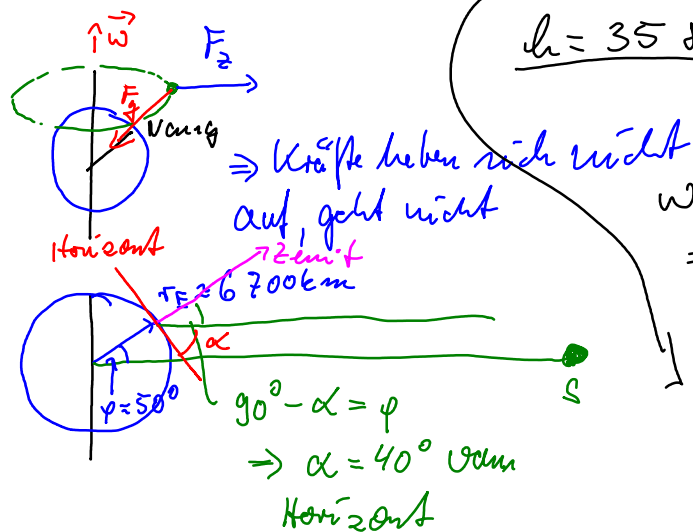 ω⃗
F_z
h = 35
F_g
⇒ Kräfte heben sich nicht
auf, geht nicht
w
=
Horizont
Zenit
r_E ≈ 6 700 km
α
φ ≈ 50°
S
90° - α = φ
⇒ α = 40° vom
Horizont